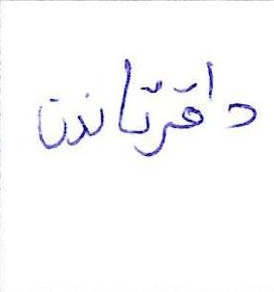 دافرتاندن